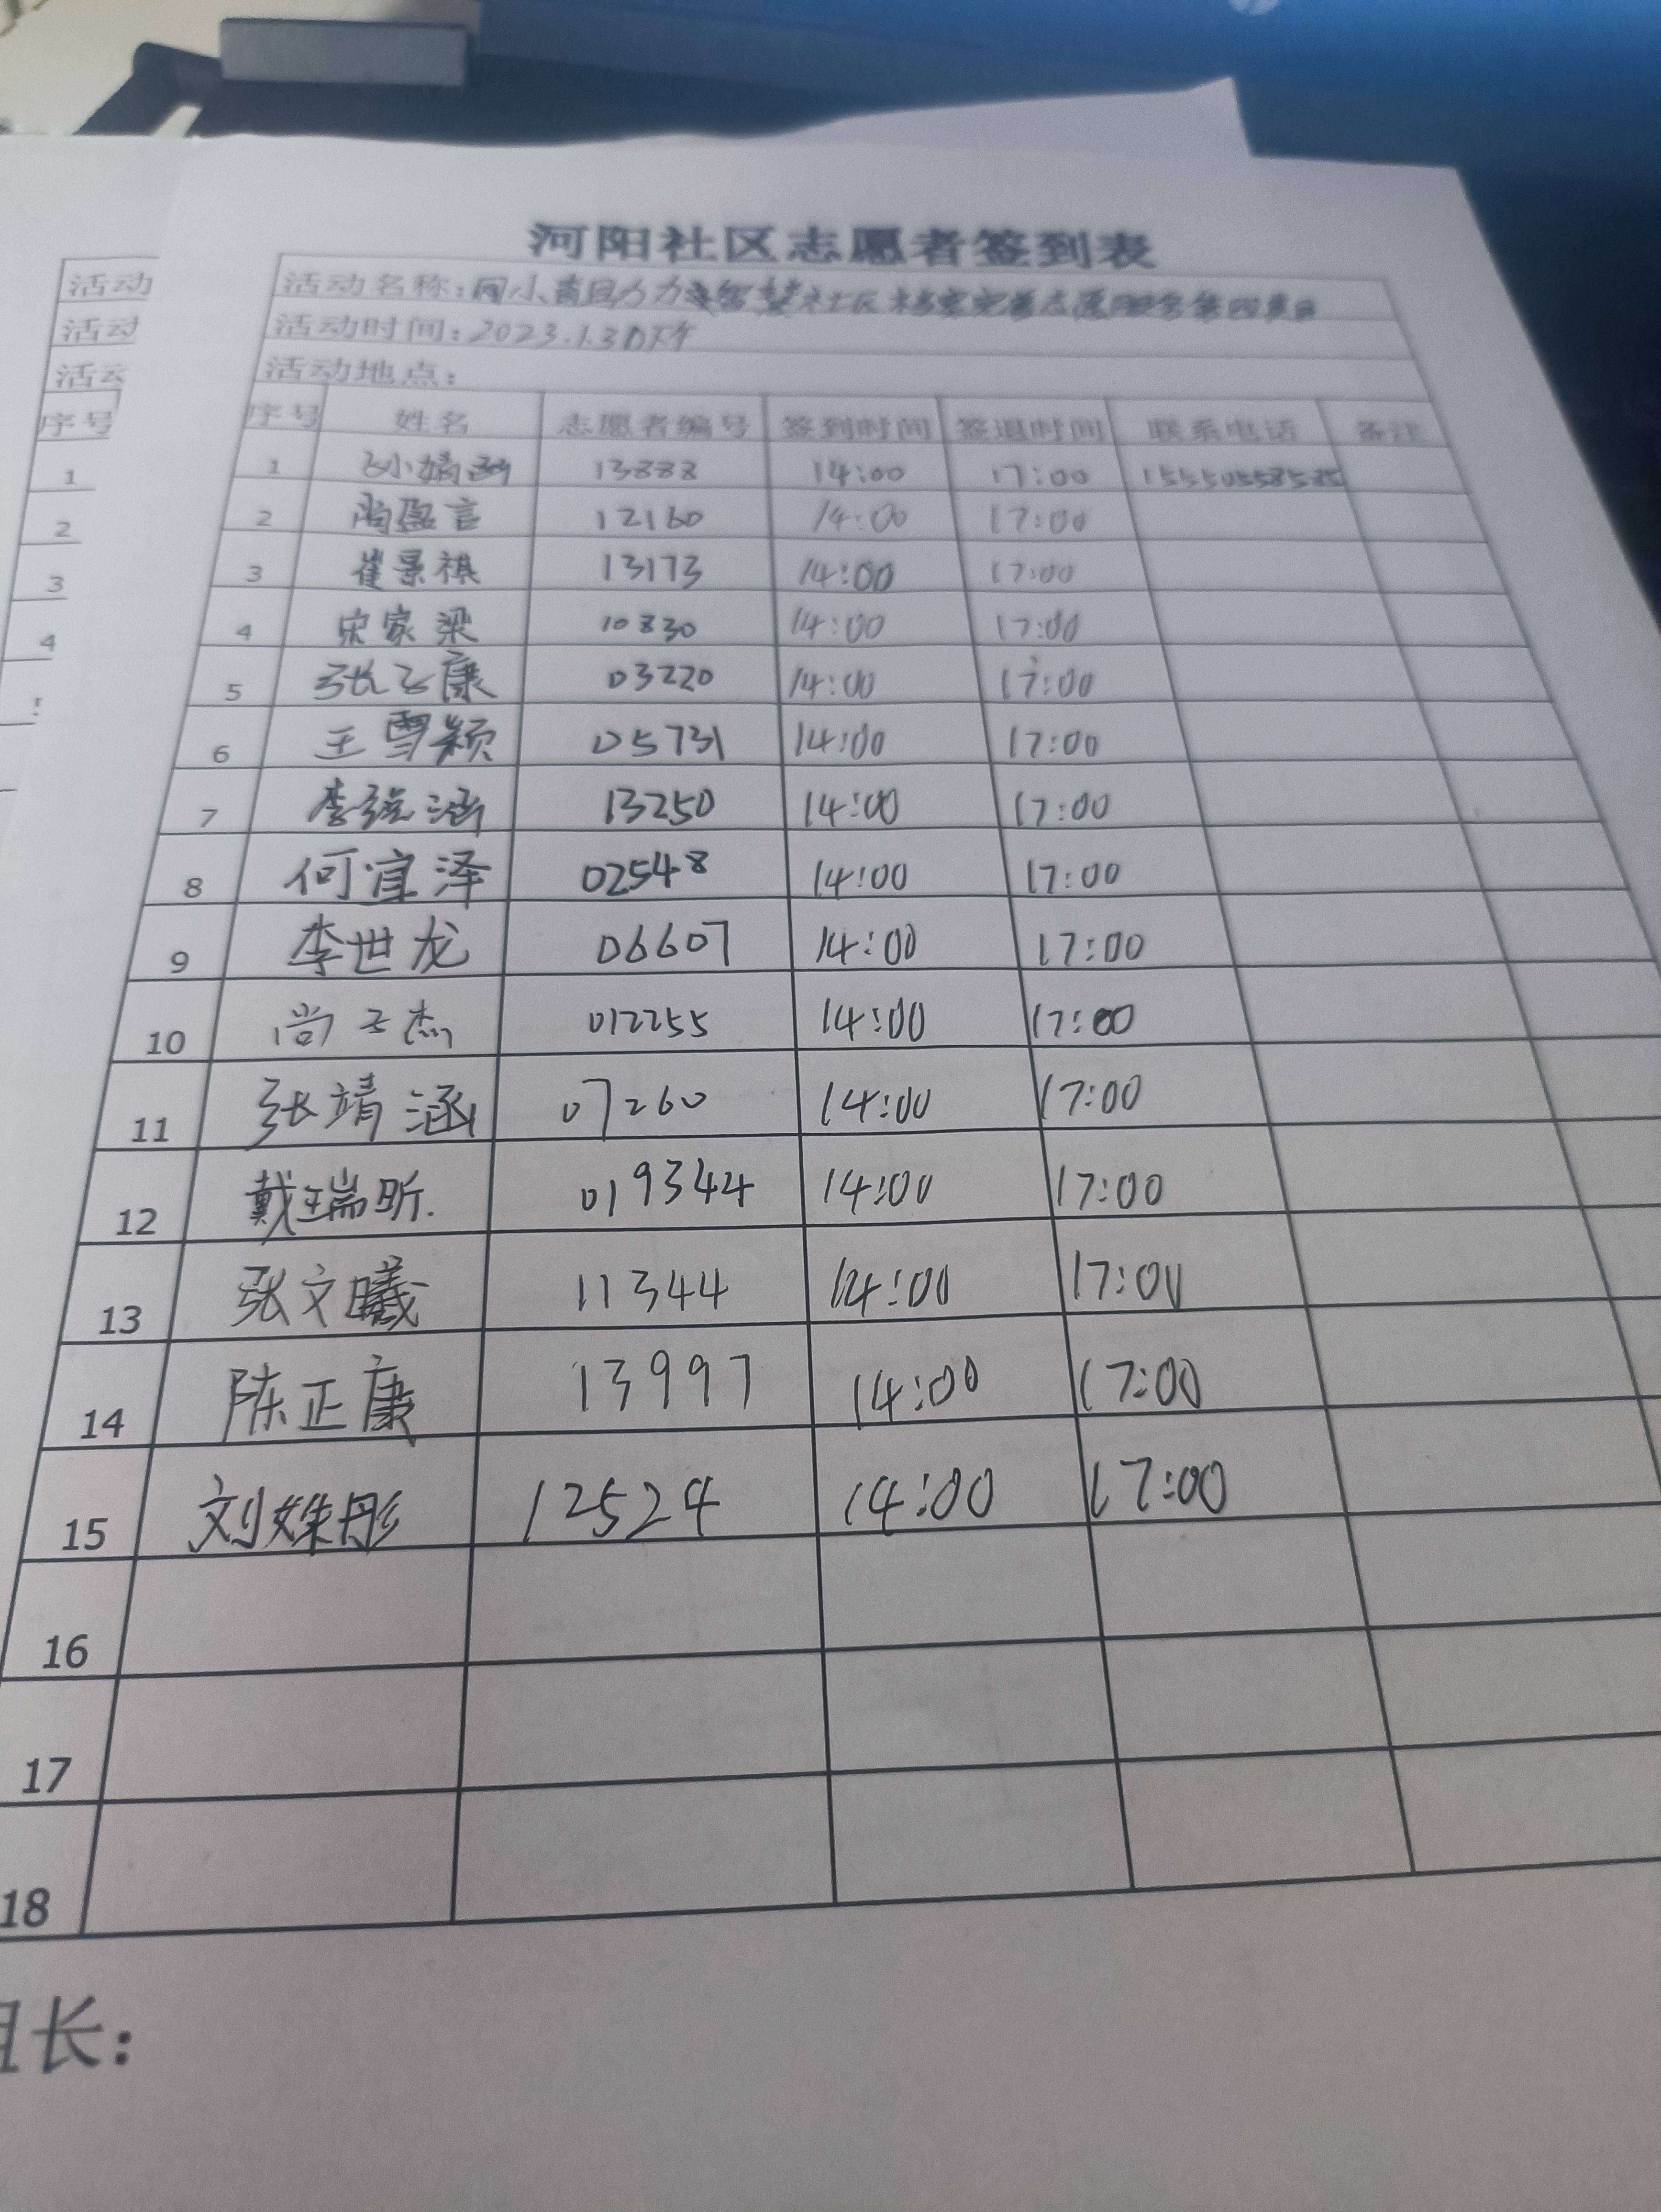 河阳社区志愿者签到表
活动名称:
活动时间: 2023.1.30下午
活动地点:
序号 姓名 志愿者编号 签到时间 签退时间 联系电话 备注
1 13888 14:00 17:00
2 陶盈言 12160 14:00 17:00
3 崔景祺 13173 14:00 17:00
4 宋家梁 10830 14:00 17:00
5 张云康 03220 14:00 17:00
6 王雪颖 05731 14:00 17:00
7 李 涵 13250 14:00 17:00
8 何宜泽 02548 14:00 17:00
9 李世龙 06607 14:00 17:00
10 尚云杰 012255 14:00 17:00
11 张靖涵 07260 14:00 17:00
12 戴瑞昕. 019344 14:00 17:00
13 张文曦 11344 14:00 17:00
14 陈正康 13997 14:00 17:00
15 刘姝彤 12524 14:00 17:00
16
17
18
组长:
活动
活动
活动
序号
1
2
3
4